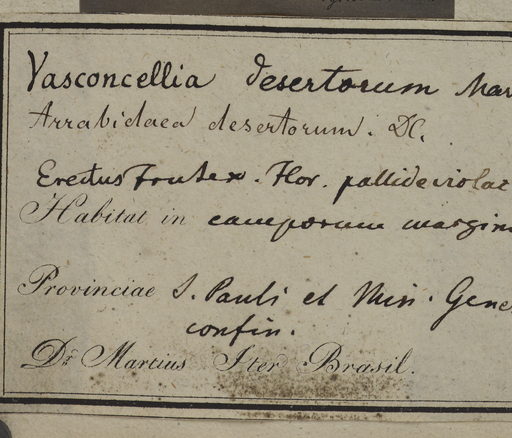 Vasconcellia desertorum Mar
Arrabidaea desertorum. DC.
Erectus Frutex. Flor. pallide violac
Habitat in camporum margin
Provinciae S. Pauli et Min. Gene
confin.
Dr. Martius Iter Brasil.